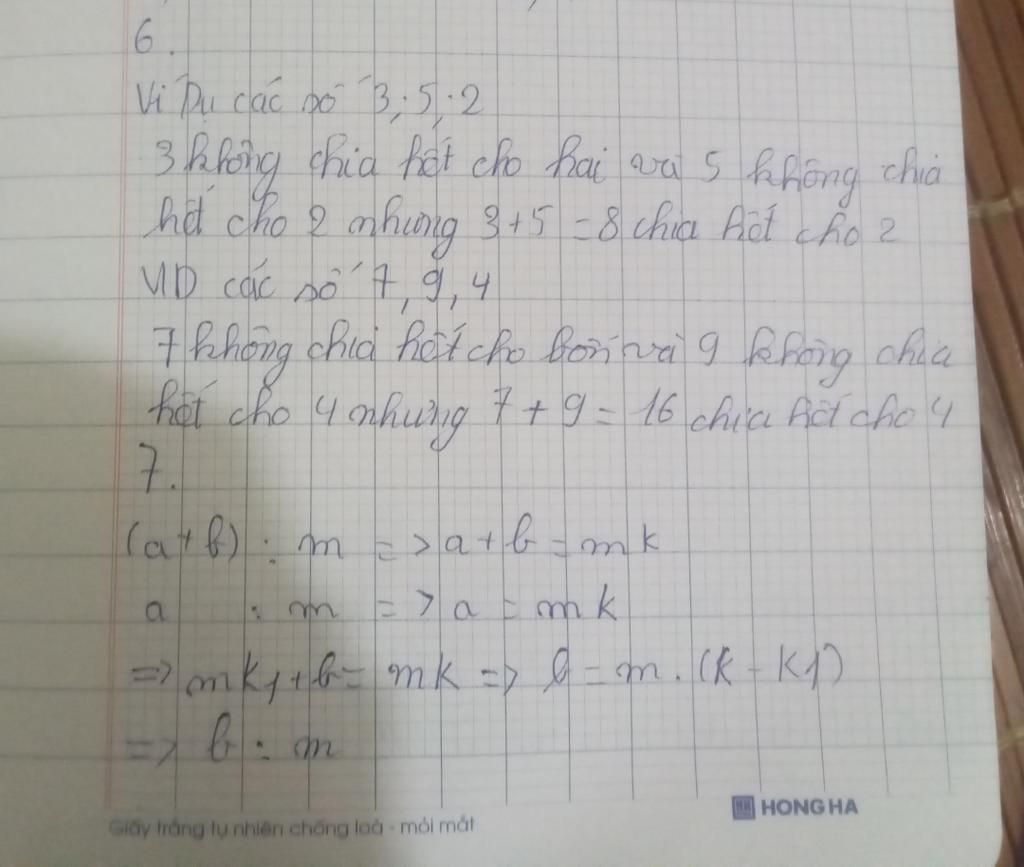 6.
Ví Dụ các số 3; 5; 2
3 không chia hết cho hai và 5 không chia
hết cho 2 nhưng 3 + 5 = 8 chia hết cho 2
VD các số 7, 9, 4
7 không chia hết cho bốn và 9 không chia
hết cho 4 nhưng 7 + 9 = 16 chia hết cho 4
7.
(a + b) : m => a + b = mk
a : m => a = mk
=> mk1 + b = mk => b = m . (k - k1)
=> b : m
HONG HA
Giấy trắng tự nhiên chống loá - mỏi mắt